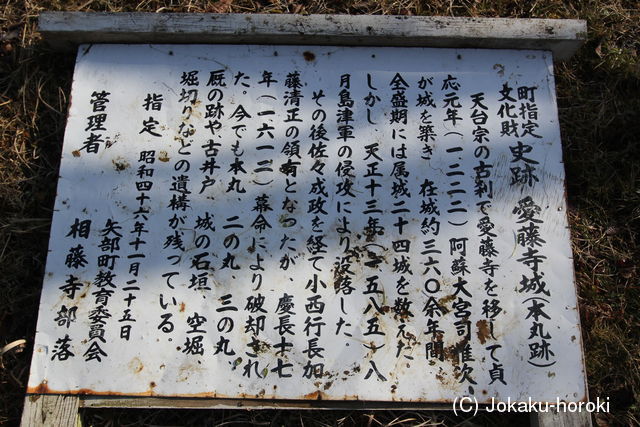 町指定
文化財
史跡 愛藤寺城(本丸跡)
天台宗の古刹で愛藤寺を移して貞
応元年(一二二二)阿蘇大宮司惟次
が城を築き 在城約三六〇余年間
全盛期には属城二十四城を数えた
しかし 天正十三年(一五八五)八
月島津軍の侵攻により没落した.
その後佐々成政を経て小西行長加
藤清正の領有となったが、慶長十七
年(一六一二)幕命により破却され
た、今でも本丸、二の丸 三の丸、
厩の跡や古井戸 城の石垣、空堀
堀切りなどの遺構が残っている.
指定 昭和四十六年十一月二十五日
管理者 矢部町教育委員会
相藤寺部落
(C) Jokaku-horoki